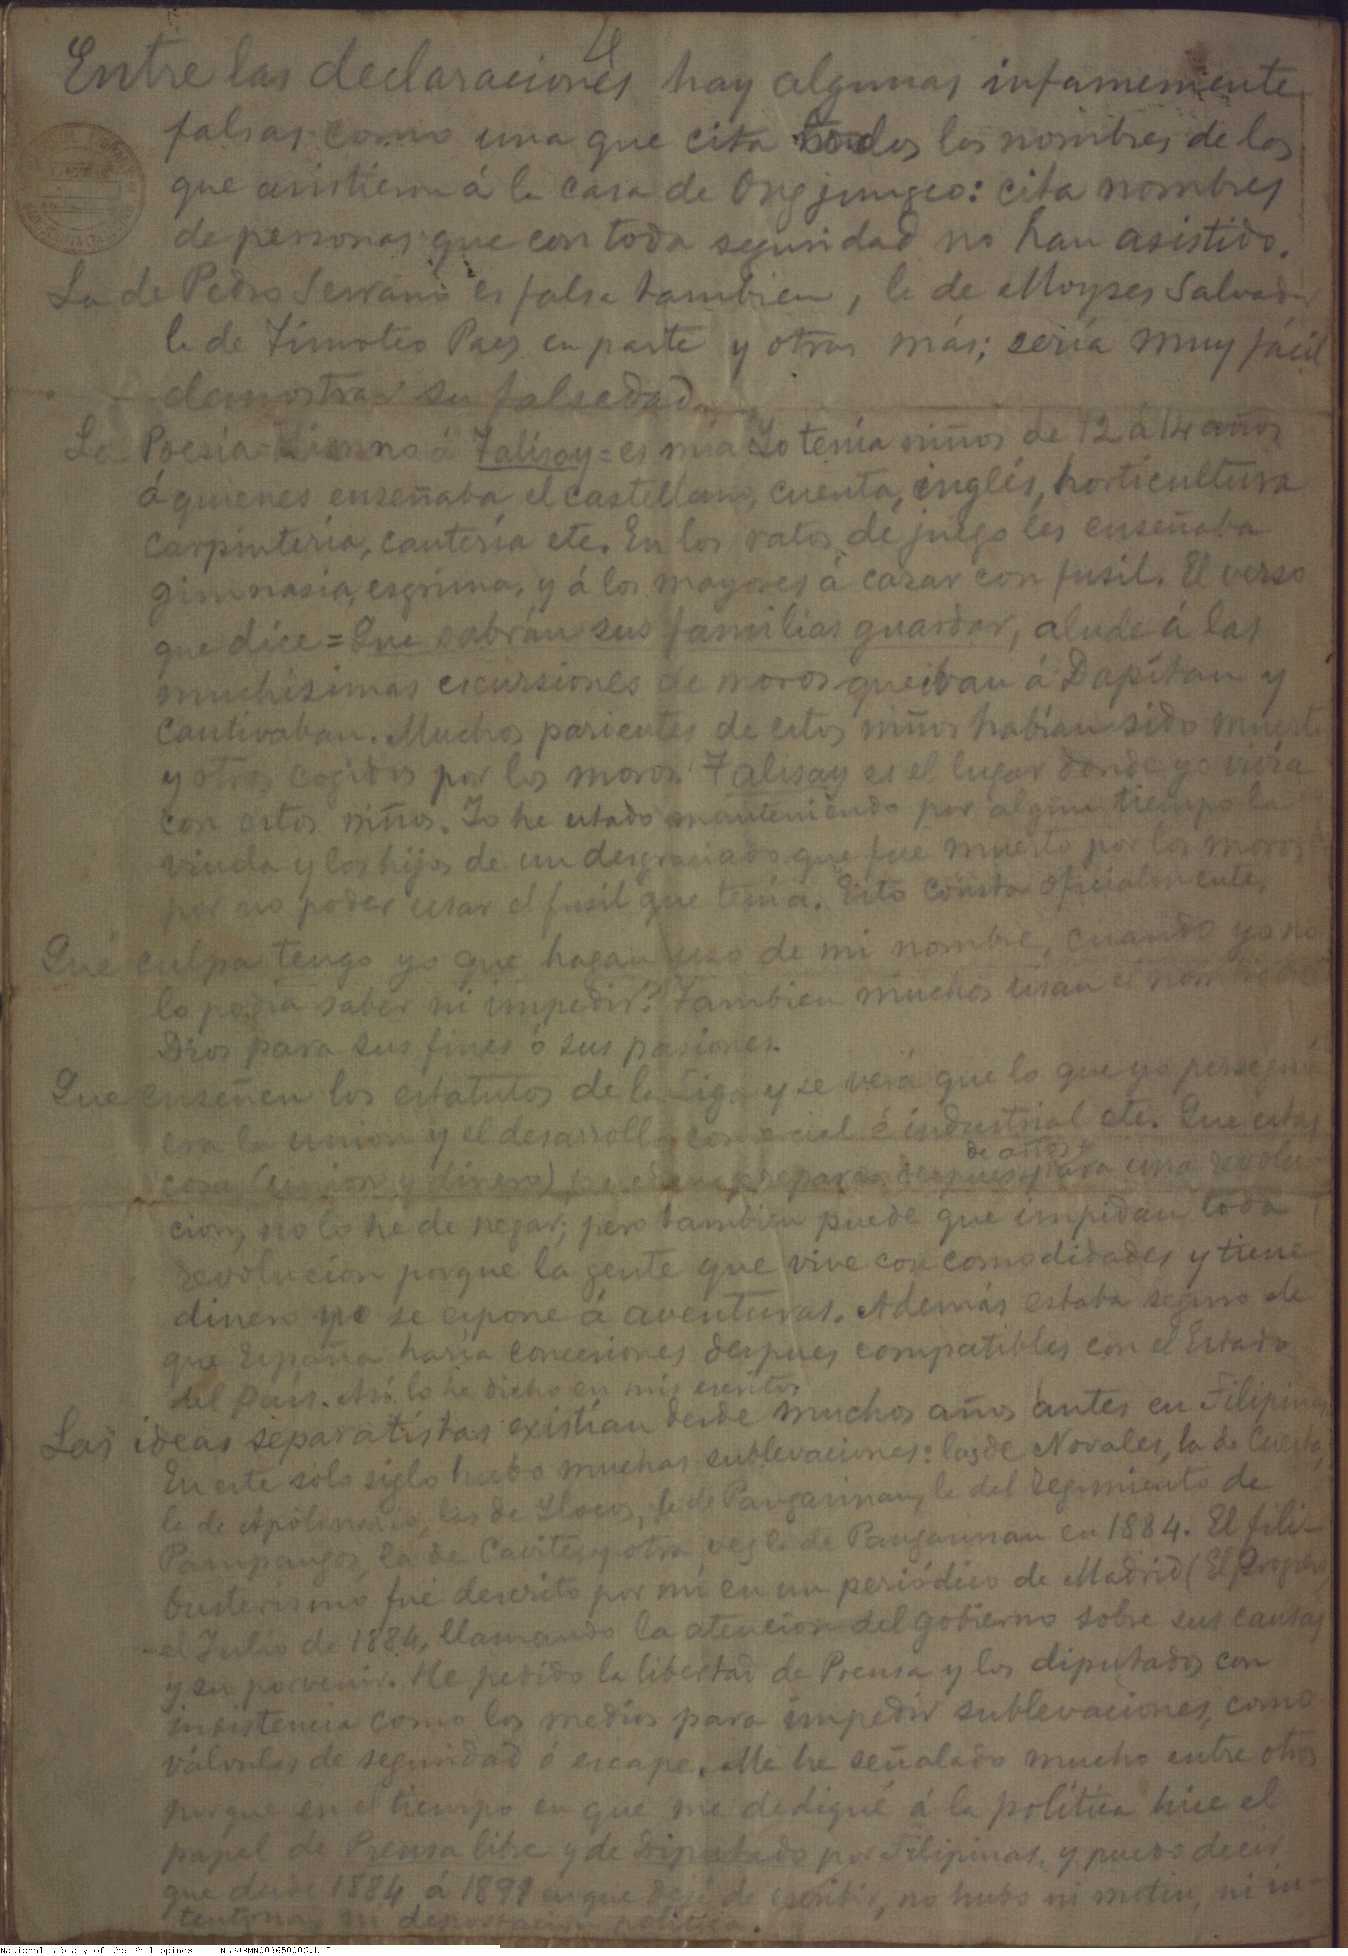 4
Entre las declaraciones hay algunas infamemente
falsas como una que cita todos los nombres de los
que asistieron á la casa de Ongjungco: cita nombres
de personas que con toda seguridad no han asistido.
La de Pedro Serrano es falsa tambien, la de Moyses Salvador
la de Timoteo Paes en parte y otras más; sería muy fácil
demostrar su falsedad.
La Poesia Himno á Talisay = es mia Yo tenía niños de 12 á 14 años
á quienes enseñaba el castellano, cuenta, inglés, horticultura
carpintería, cantería etc. En los ratos de juego les enseñaba
gimnasia, esgrima, y á los mayores á cazar con fusil. El verso
que dice = Que sabrán sus familias guardar, alude á las
muchisimas escursiones de moros que iban á Dapítan y
cautivaban. Muchos parientes de estos niños habían sido muertos
y otros cogidos por los moros. Talisay es el lugar donde yo vivía
con estos niños. Yo he estado manteniendo por algun tiempo la
viuda y los hijos de un desgraciado que fué muerto por los moros
por no poder usar el fusil que tenía. Esto consta oficialmente.
Qué culpa tengo yo que hagan uso de mi nombre, cuando yo no
lo podía saber ni impedir? Tambien muchos usan el nombre de
Dios para sus fines ó sus pasiones.
Que enseñen los estatutos de la Liga y se verá que lo que yo perseguía
era la union y el desarrollo comercial é industrial etc. Que estas
de años
cosas (union y dinero) puedan preparar despues para una revolu-
cion, no lo he de negar; pero tambien puede que impidan toda
revolucion porque la gente que vive con comodidades y tiene
dinero no se expone á aventuras. Además estaba seguro de
que España haría concesiones despues compatibles con el Estado
del País. Así lo he dicho en mis escritos
Las ideas separatistas existían desde muchos años antes en Filipinas
En este solo siglo hubo muchas sublevaciones: las de Novales, la de Cuesta,
la de Apolinario, las de Ilocos, la de Pangasinan, la del Regimiento de
Pampangos, la de Cavite, y otra vez la de Pangasinan en 1884. El fili-
busterismo fué descrito por mí en un periódico de Madrid (El Progreso)
el Julio de 1884, llamando la atencion del gobierno sobre sus causas
y su porvenir. He pedido la libertad de Prensa y los diputados con
insistencia como los medios para impedir sublevaciones, como
válvulas de seguridad ó escape. Me he señalado mucho entre otros
porque en el tiempo en que me dediqué á la política hice el
papel de Prensa libre y de Diputado por Filipinas, y puedo decir
que desde 1884 á 1891 en que dejé de escribir, no hubo ni motin, ni in-
tentona, ni deportacion política.
National Library of the Philippines